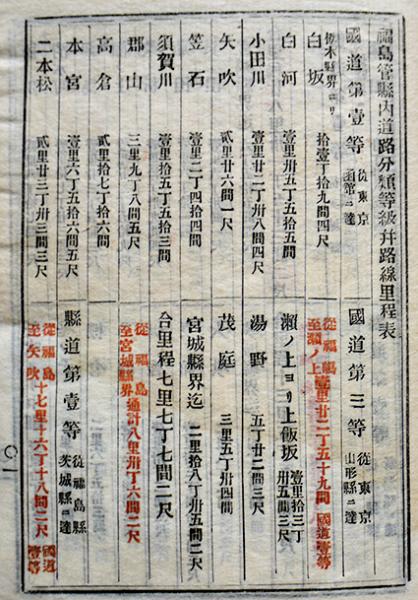 福島管縣内道路分類等級幷路線里程表
國道第壹等 從東京 函館ニ達
栃木縣界ヨリ
白坂 拾壹丁拾九間四尺
白河 壹里卅五丁四拾五間
小田川 壹里廿二丁卅八間四尺
矢吹 貳里廿六間一尺
笠石 壹里二丁四拾四間
須賀川 壹里拾五丁五拾三間
郡山 三里九丁八間五尺
高倉 貳里拾七丁拾六間
本宮 壹里六丁五拾六間五尺
二本松 貳里廿三丁卅三間三尺
國道第三等 從東京 山形縣ニ達
從福嶋 至瀬ノ上 壹里廿二丁五十九間 國道壹等
瀬ノ上ヨリ上飯坂 壹里拾三丁卅五間三尺
湯野 五丁廿二間三尺
茂庭 三里五丁卅四間
宮城縣界迄 二里拾八丁卅五間二尺
合里程七里七丁七間二尺
從福島 至宮城縣界 通計八里卅丁六間二尺
縣道第壹等 從福島縣 茨城縣ニ達
從福島 至矢吹 十七里十六丁十八間二尺 國道壹等
〇一